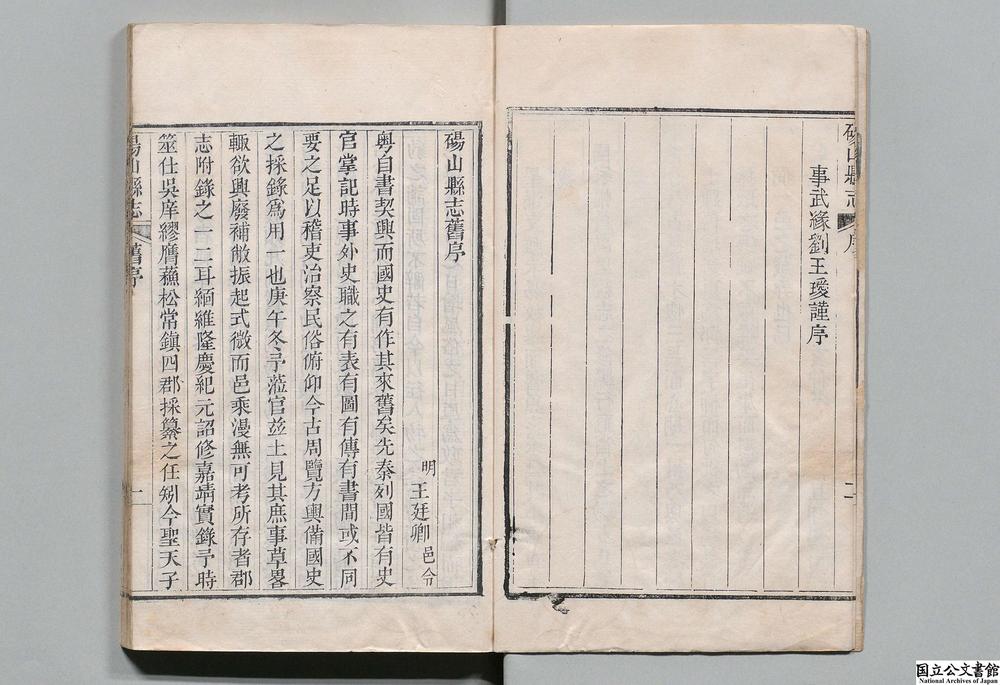 碭山縣志
序
二
事武緣劉王瑷謹序
碭山縣志舊序
明王廷卿邑令
粤自書契興而國史有作其來舊矣先秦列國皆有史
官掌記時事外史職之有表有圖有傳有書間或不同
要之足以稽吏治察民俗俯仰今古周覽方輿備國史
之採錄爲用一也庚午冬予蒞官兹土見其庶事草畧
輙欲興廢補敝振起式微而邑乘漫無可考所存者郡
志附錄之一二耳緬維隆慶紀元詔修嘉靖實錄予時
筮仕吳庠繆膺蘇松常鎮四郡採纂之任矧今聖天子
碭山縣志
舊序
一
国立公文書館
National Archives of Japan